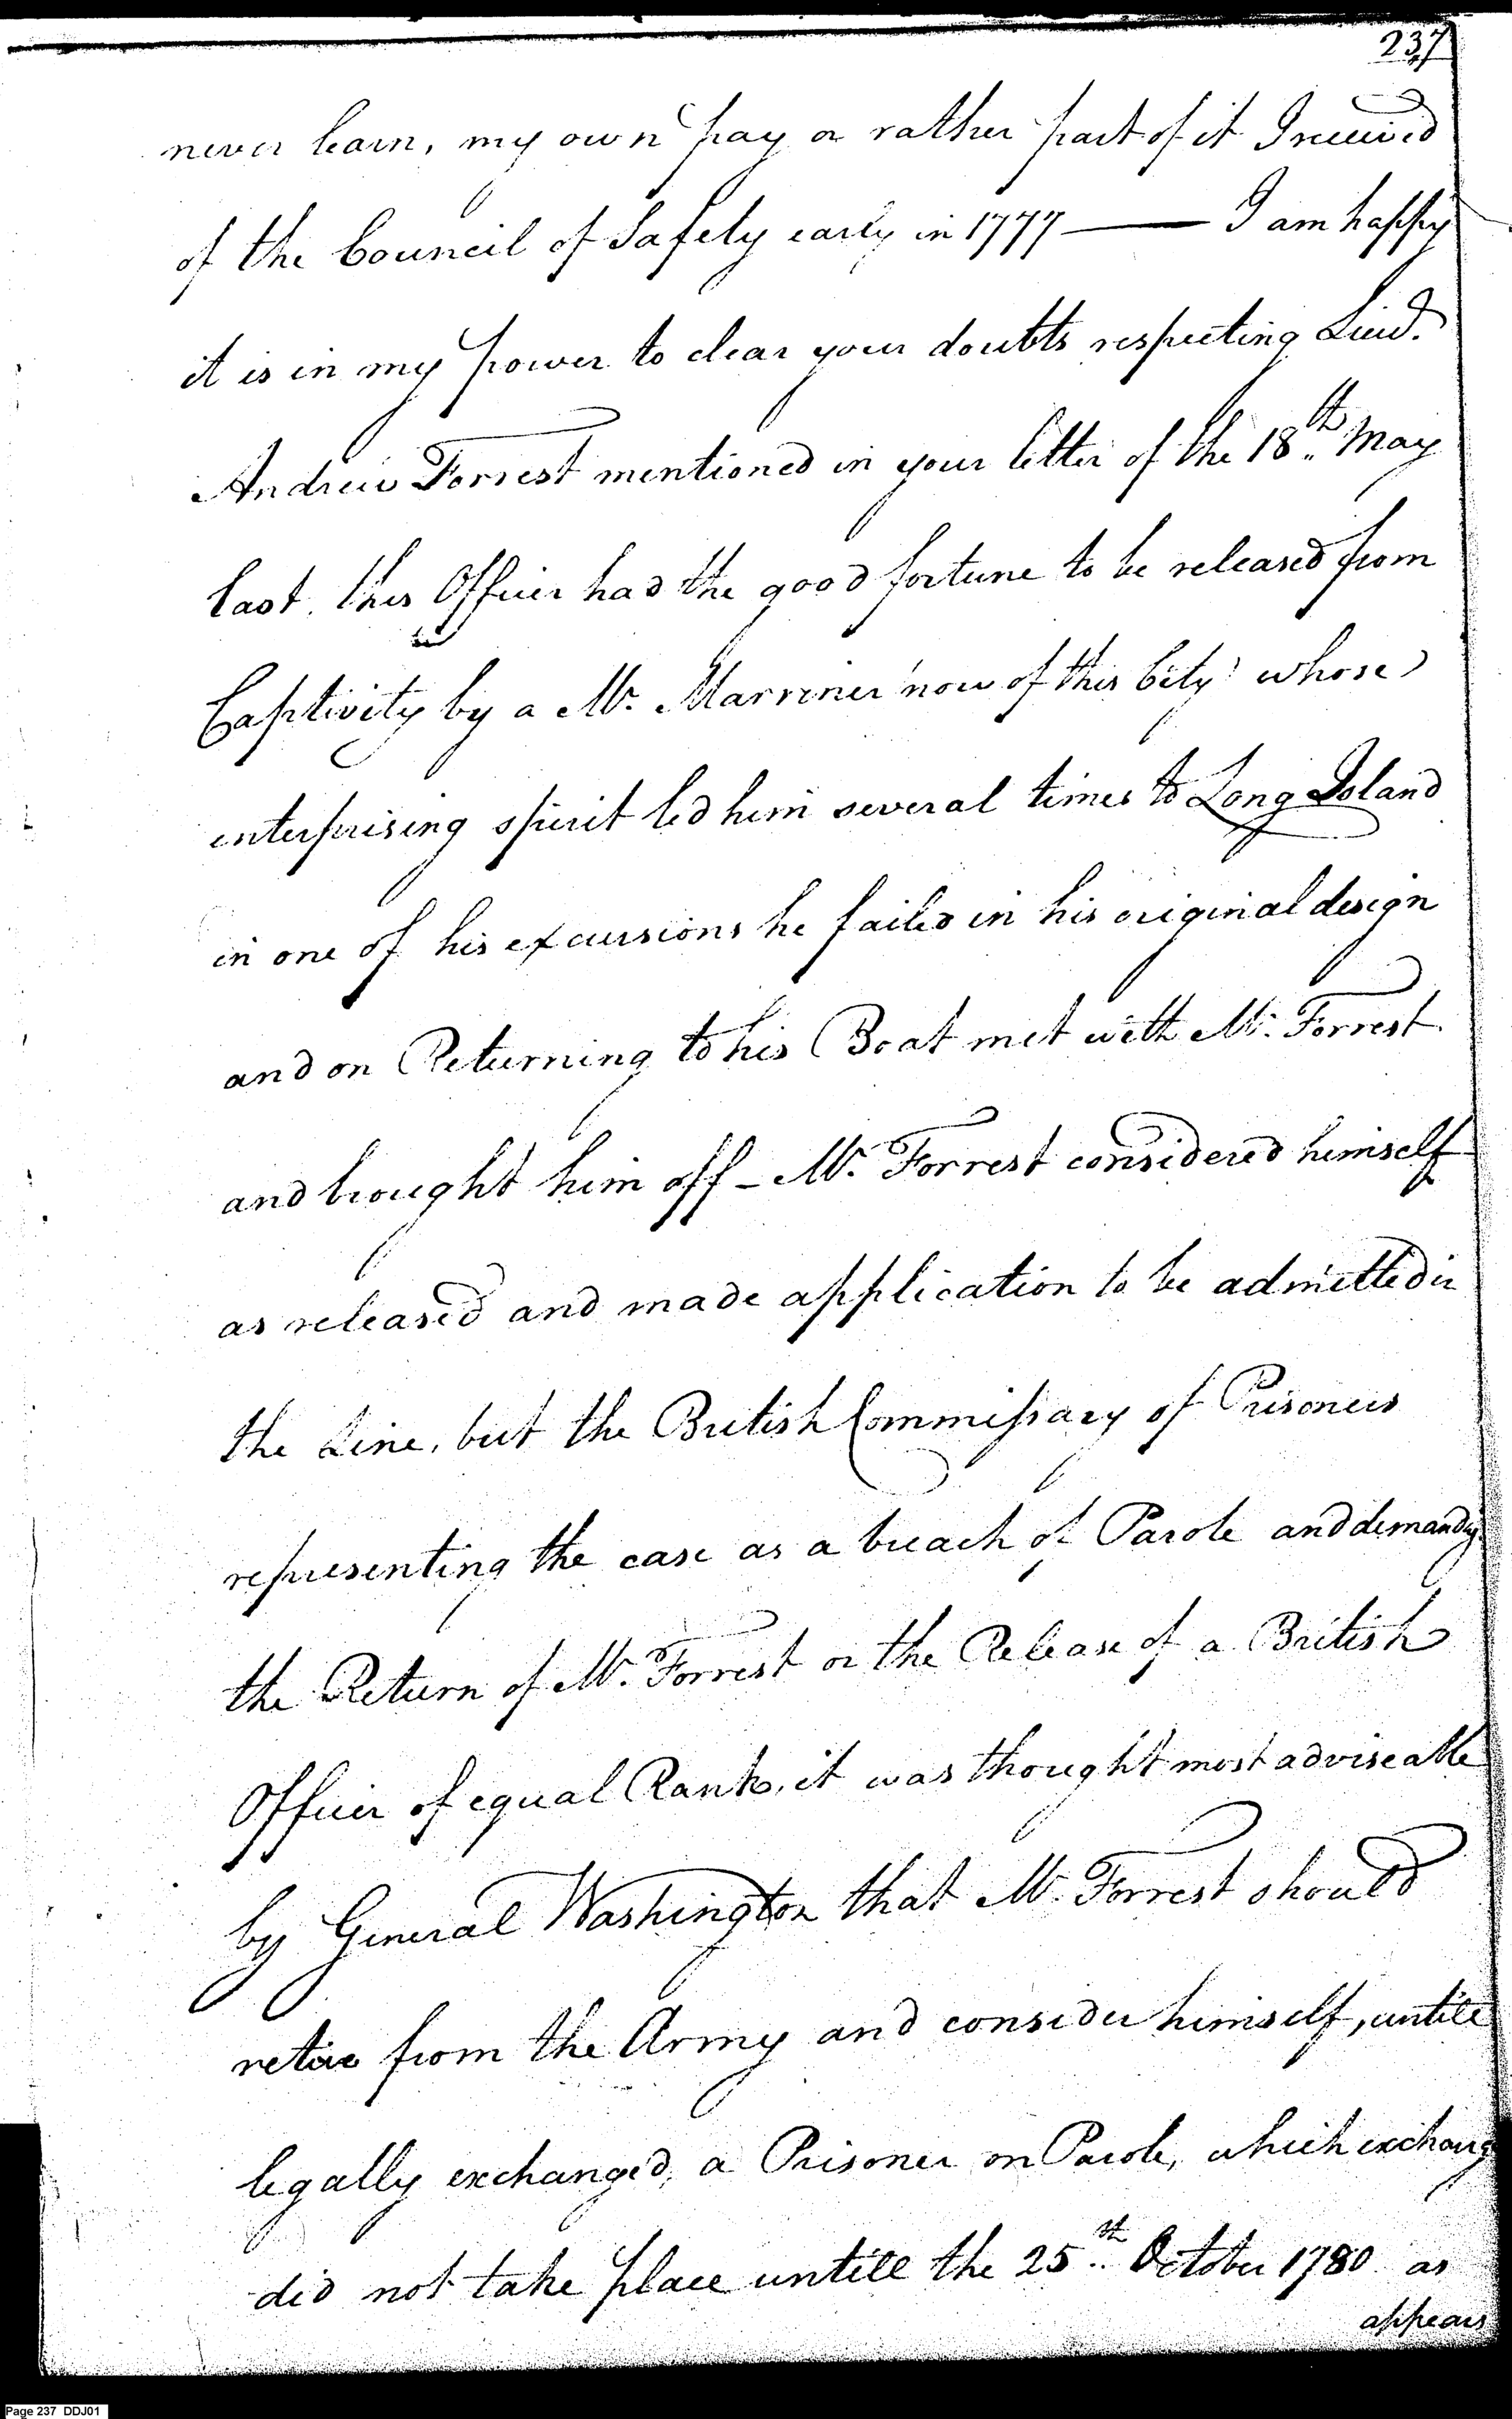 237
never learn, my own pay or rather part of it I received
of the Council of Safety early in 1777 —— I am happy
it is in my power to clear your doubts respecting Lieut.
Andrew Forrest mentioned in your letter of the 18th May
last. this Officer had the good fortune to be released from
Captivity by a Mr. Marriner now of this City whose
enterprising spirit led him several times to Long Island
in one of his excursions he failed in his original design
and on Returning to his Boat met with Mr. Forrest
and brought him off - Mr. Forrest considered himself
as released and made application to be admitted in
the Line, but the British Commissary of Prisoners
representing the case as a breach of Parole and demandg
the Return of Mr. Forrest or the Release of a British
Officer of equal Rank, it was thought most adviseable
by General Washington that Mr. Forrest should
retire from the Army and consider himself, untill
legally exchanged, a Prisoner on Parole, which exchang
did not take place untill the 25th October 1780 as
appears
Page 237 DDJ01